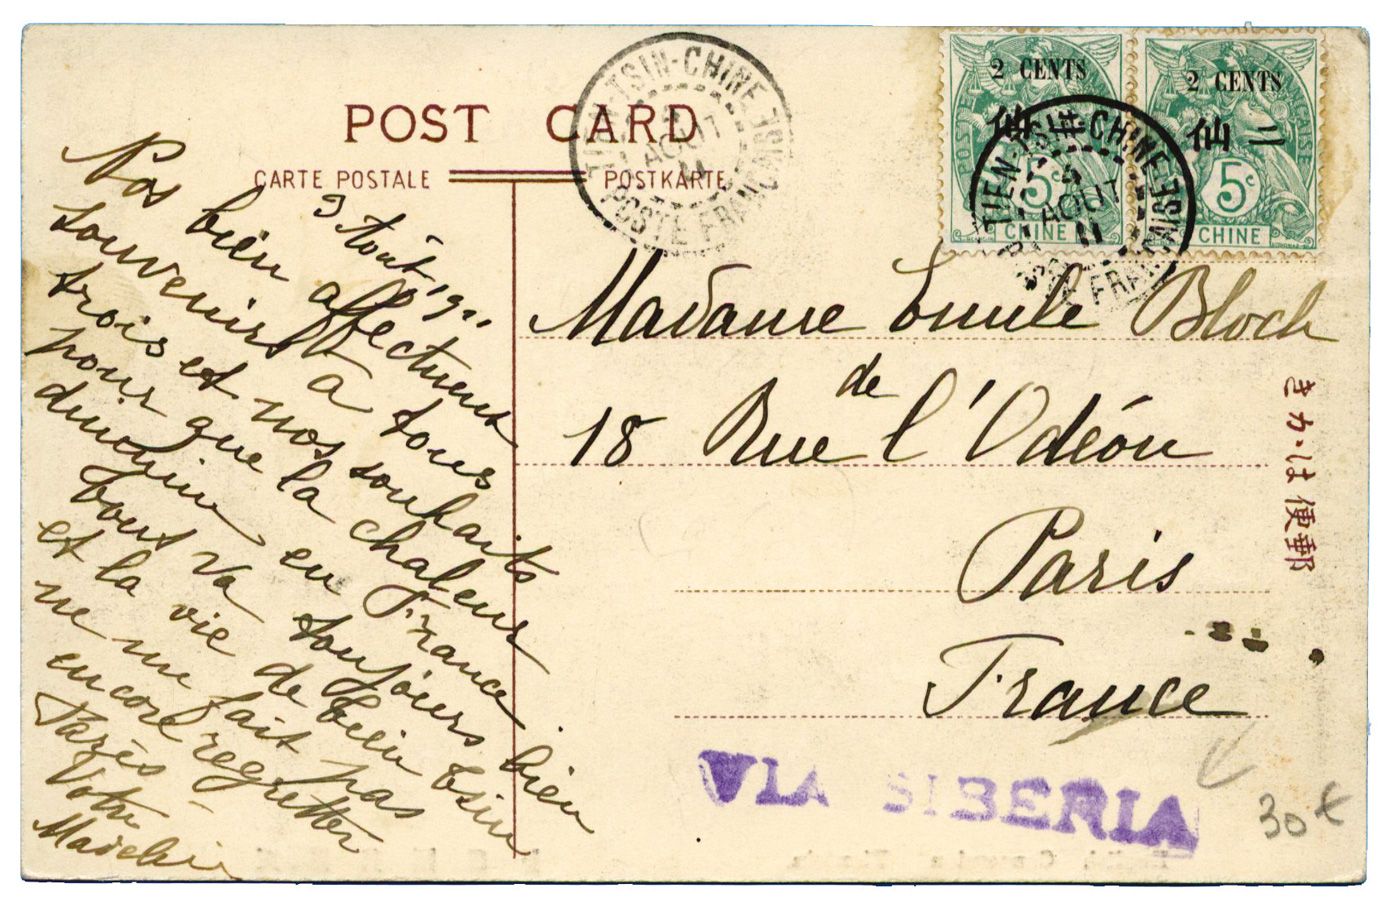 POST CARD
CARTE POSTALE
POSTKARTE
TIEN-TSIN-CHINE
AOUT
11
POSTE FRANÇAISE
2 CENTS
仙二
5c
CHINE
2 CENTS
仙二
5c
CHINE
TIEN-TSIN-CHINE
4
AOUT
11
POSTE FRANÇAISE
3 Août 1911
Nos bien affectueux
souvenirs à tous
trois et nos souhaits
pour que la chaleur
diminue en France
tout va toujours bien
et la vie de Tien Tsin
ne me fait pas
encore regretter
Paris
Votre
Madame Emile Bloch
18 Rue de l'Odéon
Paris
France
きかは便郵
VIA SIBERIA
30 €